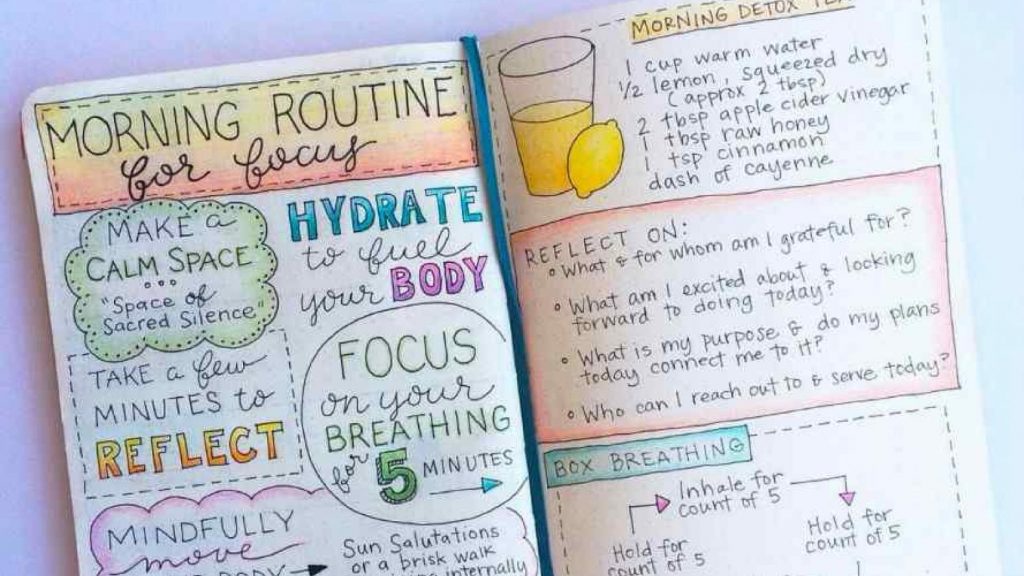 MORNING ROUTINE
for focus
MAKE a
CALM SPACE
"Space of
Sacred Silence"
HYDRATE
to fuel
your BODY
TAKE a few
MINUTES to
REFLECT
FOCUS
on your
BREATHING
for 5 MINUTES
MINDFULLY
move
BODY
Sun Salutations
or a brisk walk
internally
MORNING DETOX
1 cup warm water
1/2 lemon, squeezed dry
(approx 2 tbsp)
2 tbsp apple cider vinegar
1 tbsp raw honey
1 tsp cinnamon
dash of cayenne
REFLECT ON:
• What & for whom am I grateful for?
• What am I excited about & looking
forward to doing today?
• What is my purpose & do my plans
today connect me to it?
• Who can I reach out to & serve today?
BOX BREATHING
Inhale for
count of 5
Hold for
count of 5
Hold for
count of 5